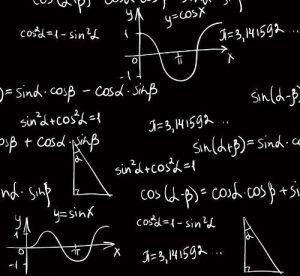 y
y=cosx
cos²α=1-sin²α
1
0
π
x
-1
π=3,141592...
)=sinα·cosβ-cosα·sinβ
sin(α-β)=
sin²α+cos²α=1
π=3,141592...
osβ+cosα·sinβ
sin(α+β)=sinα·c
α
sin²α+cos²α=1
nα·sinβ
cos(α-β)=cosα·cosβ+si
y
y=sinx
1
cos²α=1-sin²α
α
0
π
x
-1
π=3,141592...